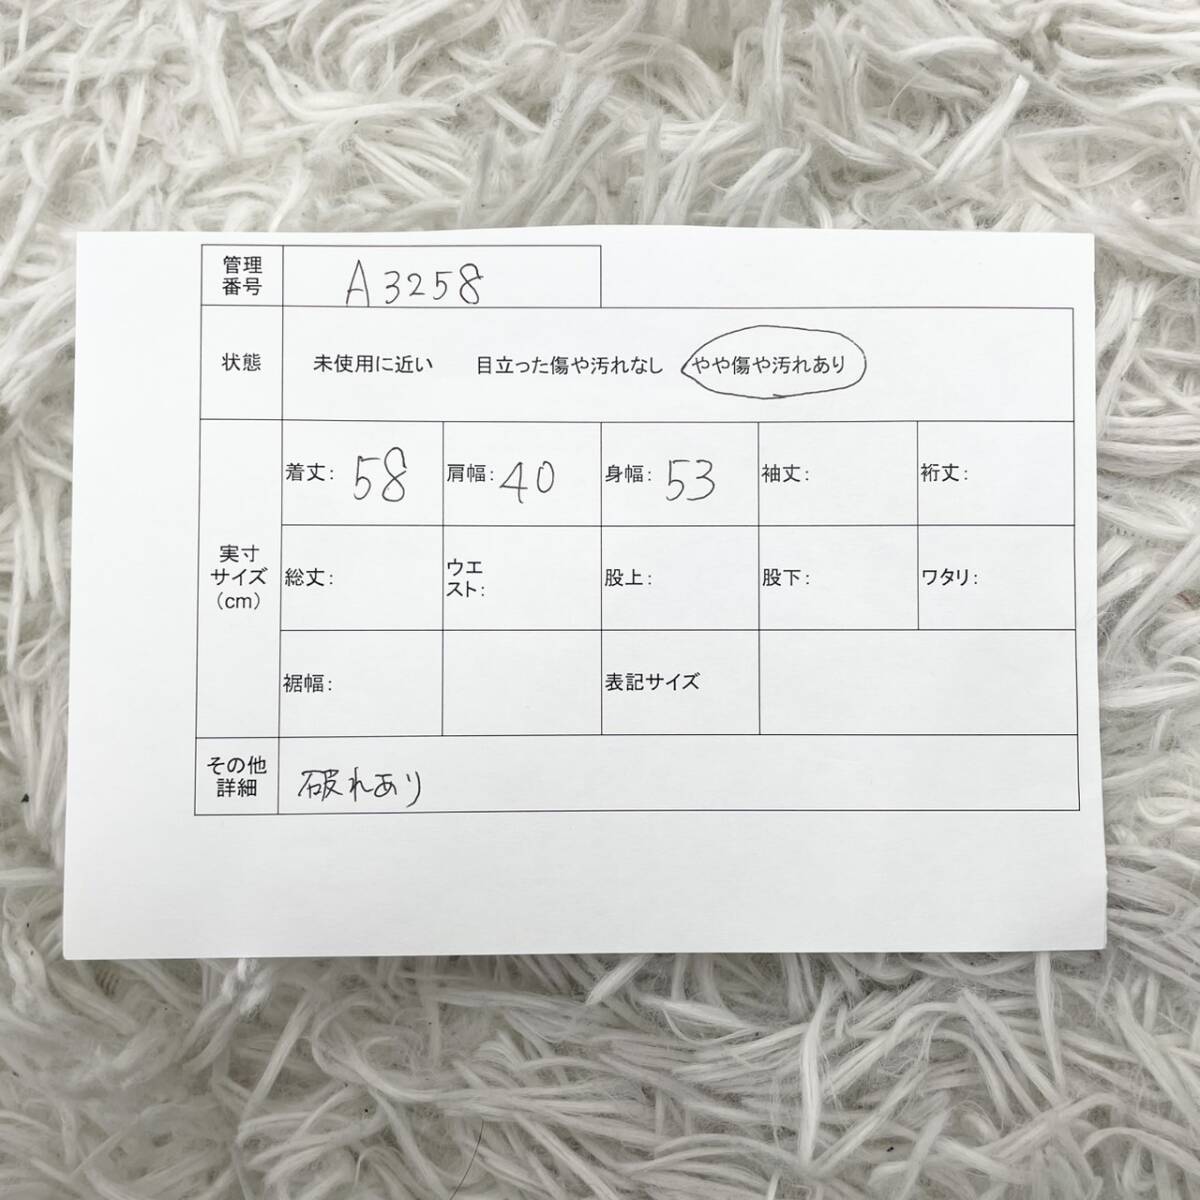 管理
番号
A3258
状態
未使用に近い 目立った傷や汚れなし やや傷や汚れあり
実寸
サイズ
(cm)
着丈: 58 肩幅: 40 身幅: 53 袖丈: 裄丈:
総丈: ウエ
スト: 股上: 股下: ワタリ:
裾幅: 表記サイズ
その他
詳細
破れあり